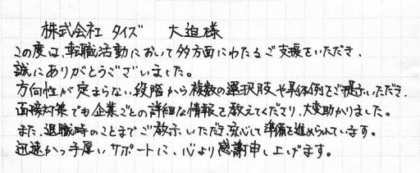 株式会社 タイズ 大迫様
この度は、転職活動において多方面にわたるご支援をいただき、
誠にありがとうございました。
方向性が定まらない段階から複数の選択肢や具体例をご提示いただき、
面接対策でも企業ごとの詳細な情報を教えてくださり、大変助かりました。
また、退職時のことまでご教示いただき、安心して準備を進められています。
迅速かつ手厚いサポートに、心より感謝申し上げます。